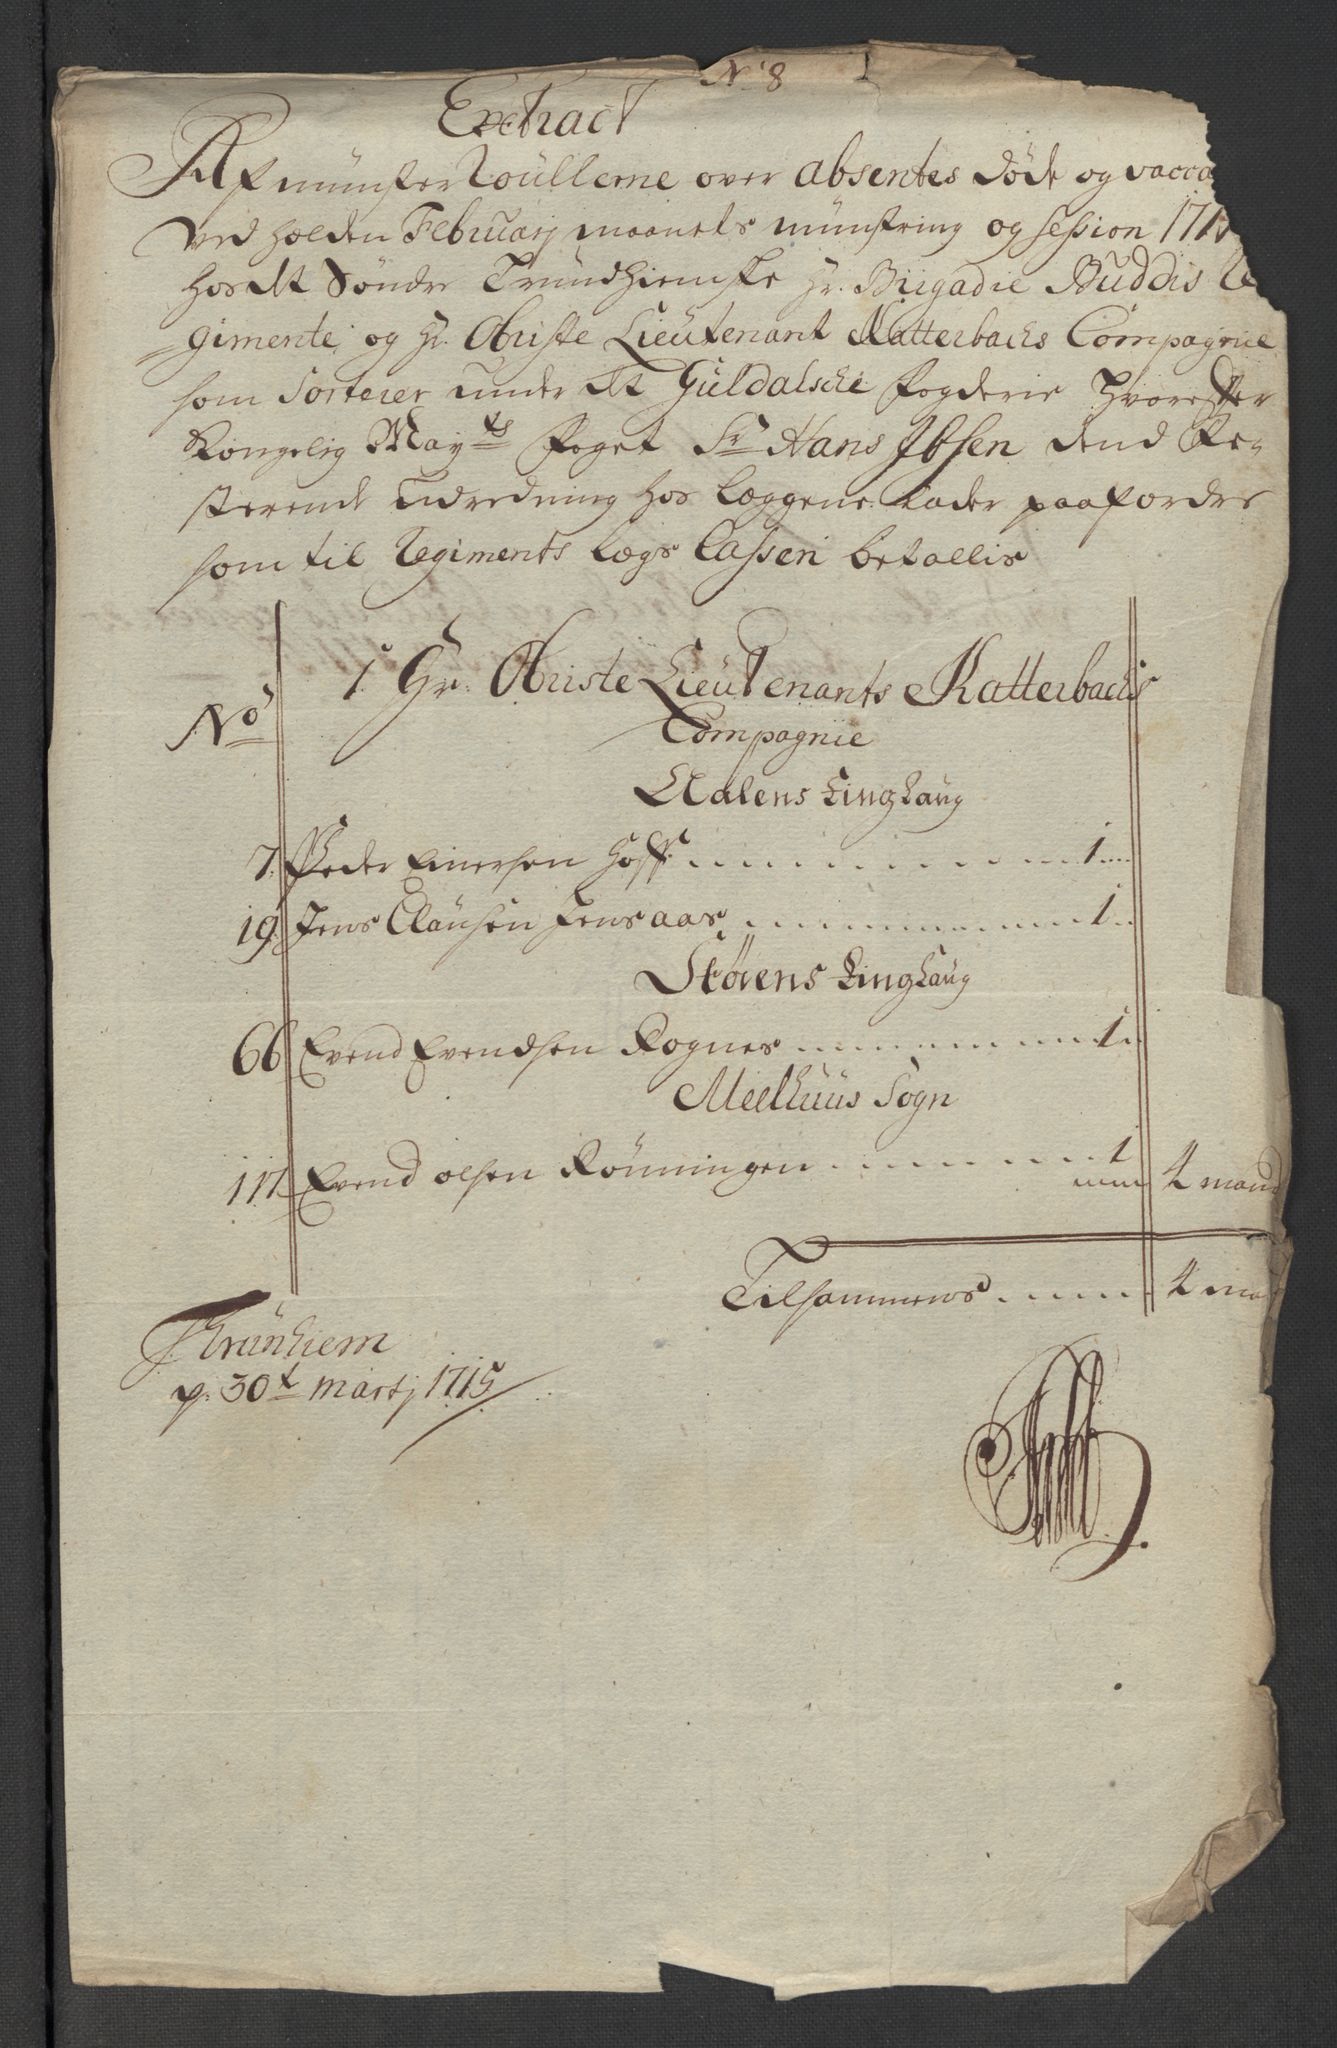 No 8
Extract
Af münster Roüllerne over absentes døde og vacca
ved holden Februarj maanets münstring og session 171
hos det Søndre Trundhiemske Hr. Brigadie Buddis Re
gimente og Hr. Obriste Lieutenant Katterbachs Compagnie
som Sorterer under det Guldalsche fogderie hvorefter
Kongelig Mayts foget Sr Hans Ibsen dend Re-
sterende udredning hos læggene lader paafordre
som til Regiments lægs Cassen betallis
1 Hr. Obriste Lieutenants Katterbachs
No
Compagnie
Aalens tinghaug
7 Peder Einersen Hoff 1
19 Jens Clausen Jensaas 1
Størens tinghaug
66 Evend Evendsen Rognes 1
Meelhuus Sogn
117 Evend olsen Rønningen 1 4 mand
Tilsammens 4 ma
Thrunhiem
p. 30t martj 1715